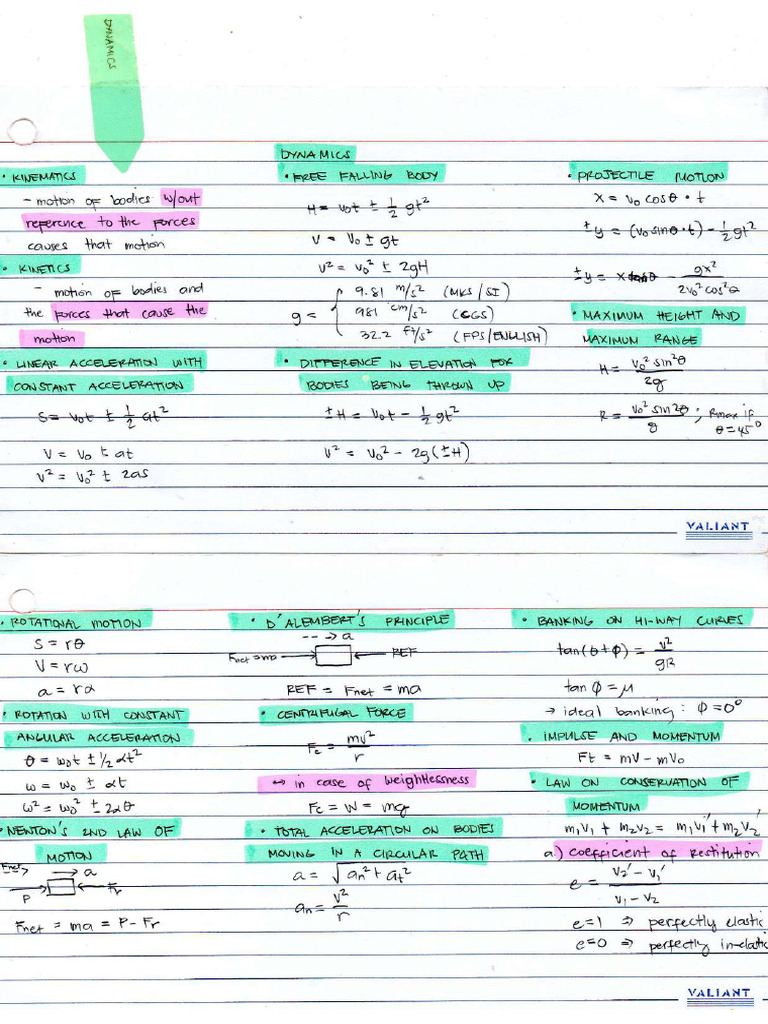 DYNAMICS
DYNAMICS
• KINEMATICS
- motion of bodies w/out
reference to the forces
causes that motion
• KINETICS
- motion of bodies and
the forces that cause the
motion
• LINEAR ACCELERATION WITH
CONSTANT ACCELERATION
S = v₀t ± 1/2 at²
V = V₀ ± at
V² = V₀² ± 2as
• FREE FALLING BODY
H = v₀t ± 1/2 gt²
V = V₀ ± gt
V² = V₀² ± 2gH
g = { 9.81 m/s² (MKS/SI)
981 cm/s² (CGS)
32.2 ft/s² (FPS/ENGLISH)
• DIFFERENCE IN ELEVATION FOR
BODIES BEING THROWN UP
±H = V₀t - 1/2 gt²
V² = V₀² - 2g(±H)
• PROJECTILE MOTION
x = v₀ cosθ • t
±y = (v₀ sinθ • t) - 1/2 gt²
±y = x tanθ - gx²/2v₀²cos²θ
• MAXIMUM HEIGHT AND
MAXIMUM RANGE
H = v₀² sin²θ/2g
R = v₀² sin2θ/g ; Rmax if
θ = 45°
VALIANT
• ROTATIONAL MOTION
S = rθ
V = rω
a = rα
• ROTATION WITH CONSTANT
ANGULAR ACCELERATION
θ = ω₀t ± 1/2 αt²
ω = ω₀ ± αt
ω² = ω₀² ± 2αθ
• NEWTON'S 2ND LAW OF
MOTION
Fnet
a
P
Fr
Fnet = ma = P - Fr
• D'ALEMBERT'S PRINCIPLE
a
Fnet = ma
REF
REF = Fnet = ma
• CENTRIFUGAL FORCE
Fc = mv²/r
↔ in case of weightlessness
Fc = W = mg
• TOTAL ACCELERATION ON BODIES
MOVING IN A CIRCULAR PATH
a = √an² + at²
an = v²/r
• BANKING ON HI-WAY CURVES
tan(θ+φ) = v²/gR
tan φ = μ
→ ideal banking : φ = 0°
• IMPULSE AND MOMENTUM
Ft = mV - mV₀
• LAW ON CONSERVATION OF
MOMENTUM
m₁v₁ + m₂v₂ = m₁v₁' + m₂v₂'
a.) coefficient of Restitution
e = v₂' - v₁'/v₁ - v₂
e=1 ⇒ perfectly elastic
e=0 ⇒ perfectly in-elastic
VALIANT